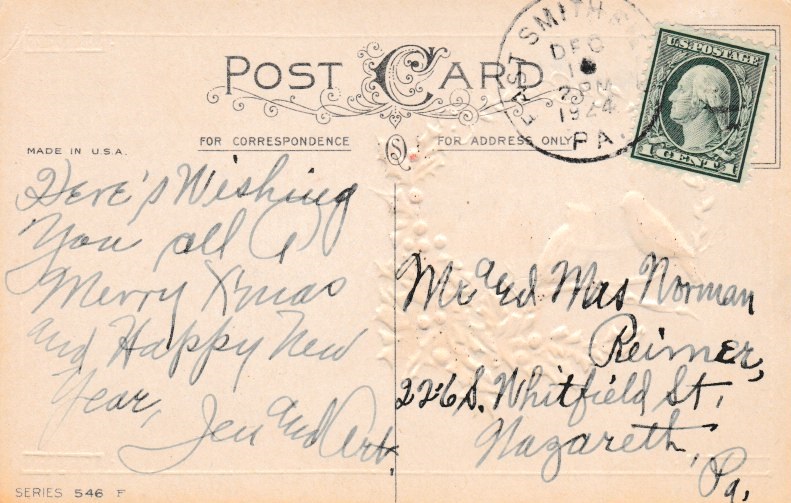 POST CARD
EAST SMITH
DEC
1
2 PM
1924
PA.
U.S. POSTAGE
1 CENT 1
FOR CORRESPONDENCE
S
FOR ADDRESS ONLY
MADE IN U.S.A.
Here's Wishing
You all a
Merry Xmas
and Happy New
Year,
Jen and Art.
Mr and Mrs Norman
Reimer,
226 S. Whitfield St,
Nazareth,
Pa,
SERIES 546 F